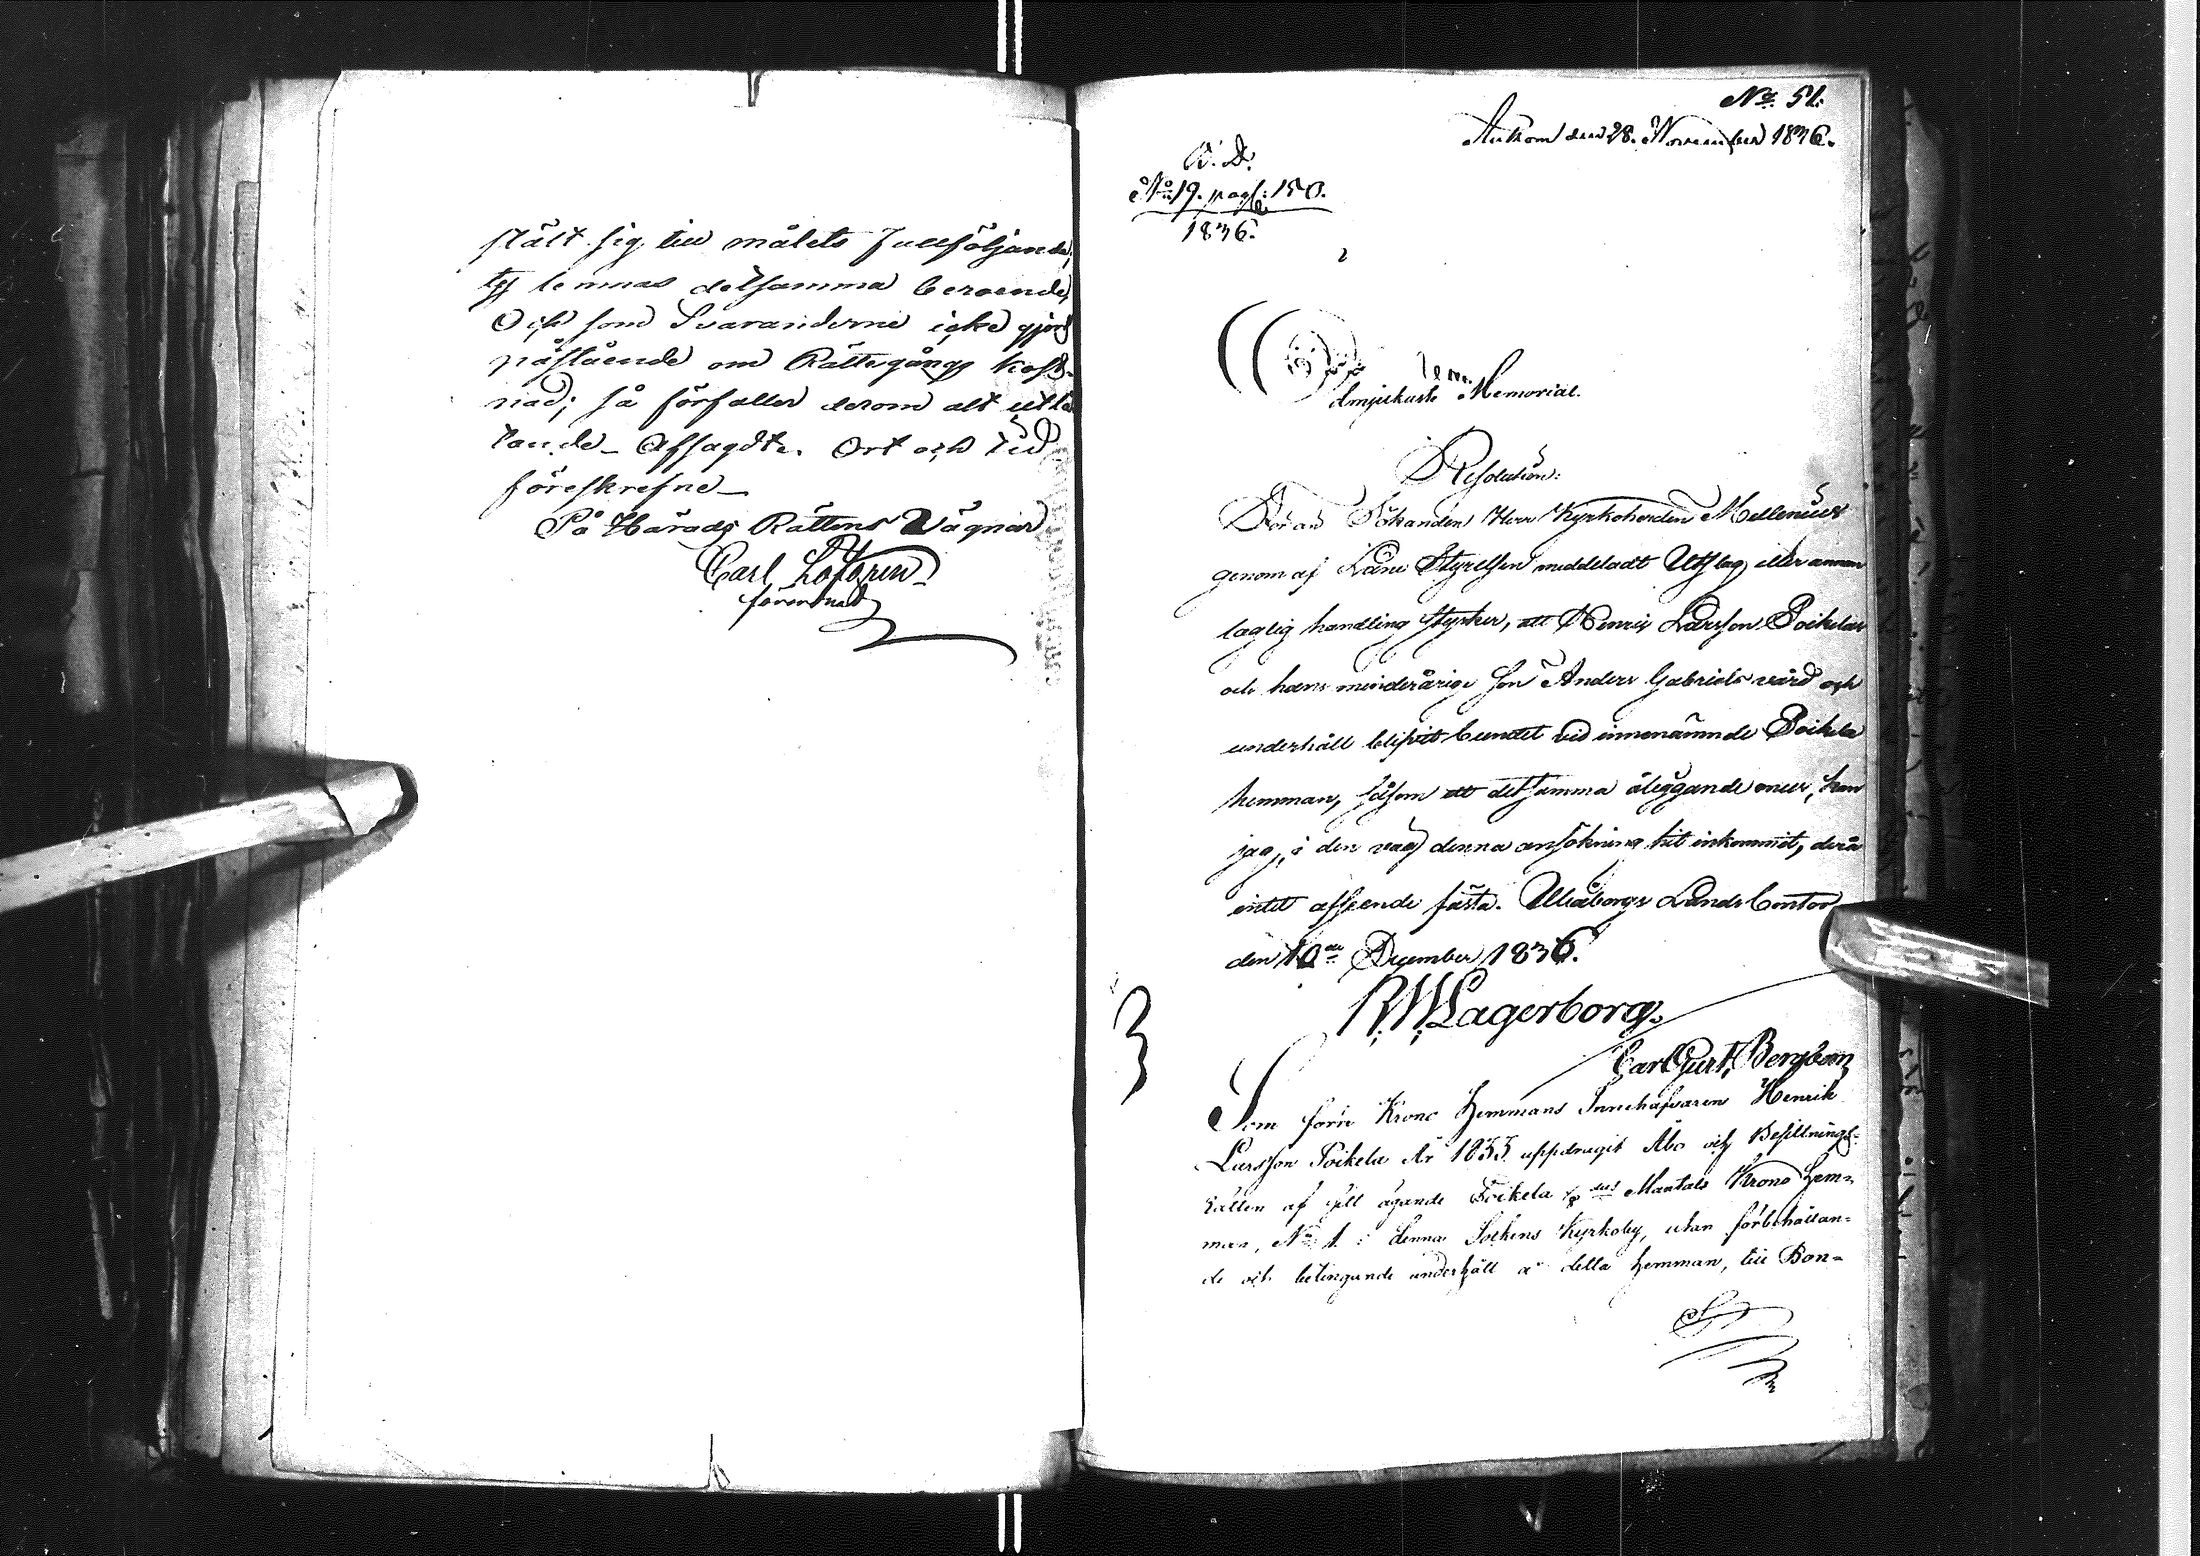 stält sig till målets fullföljande,
ty lemnas detsamma beroende,
Och som Svaranderne icke gjort
påstående om Rättegångs kost-
nad; så förfaller derom alt utlå
tande_ Afsagdt. Ort och tid
föreskrefne_
På Härads Rättens Vägnar
Carl Löfgren
förordnad
No 51.
Ankom den 28. November 1836.
B. D.
No 19. pag: 150.
1836.
Ödmjukaste Memorial.
Resolution:
Förän Sökanden Herr Kyrkoherden Mellenius
genom af Läne Styrelsen meddeladt Utslag eller annan
laglig handling styrker, att Henric Larsson Poikelas
och hans minderårige Son Anders Gabriels vård och
underhåll blifvit bundet vid innenämnde Poikela
hemman, såsom ett detsamma åliggande onus, kan
jag, i den väg denna ansökning hit inkommit, derå
intet afseende fästa. Uleåborgs Lands Contor
den 10de December 1836.
R W Lagerborg.
Carl Gust. Bergbom
Som förre Krono Hemmans Innehafvaren Henrik
Larsson Poikela År 1833 uppdragit Åbo och Besittnings-
rätten af sitt ägande Poikela Mantals Krono Hem-
man, No 1. i denna Sockens Kyrkoby, utan förbehållan-
de och betingande underhåll å detta hemman, till Bon-